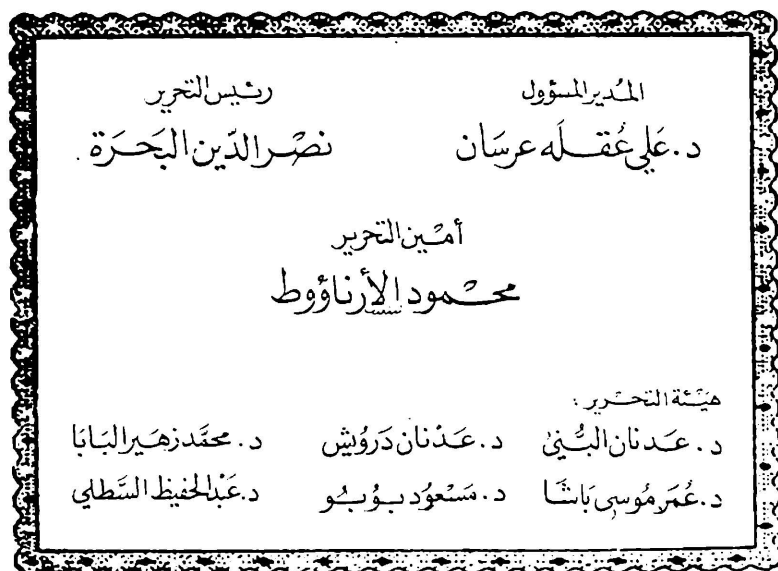 المدير المسؤول رئيس التحرير
د. علي عُقله عرسان نصر الدّين البَحرَة
أمين التحرير
محمود الأرناؤوط
هيئة التحرير :
د. عدنان البُني د. عَدنان دَرويش د. محمَّد زهَير البَابَا
د. عُمَر مُوسى بَاشَا د. مَسْعُود بوبُو د. عَبْد الحَفيظ السَّطلي